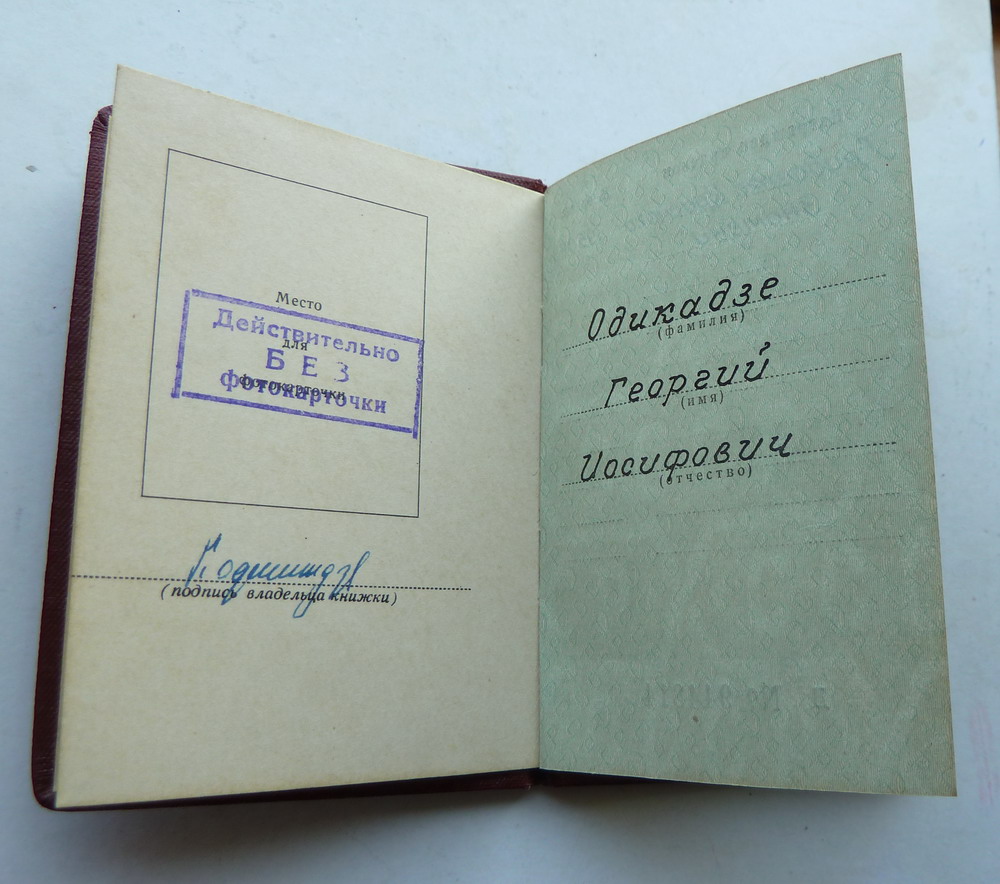 Место
для
фотокарточки
Действительно
БЕЗ
фотокарточки
(подпись владельца книжки)
Одикадзе
(фамилия)
Георгий
(имя)
Иосифович
(отчество)